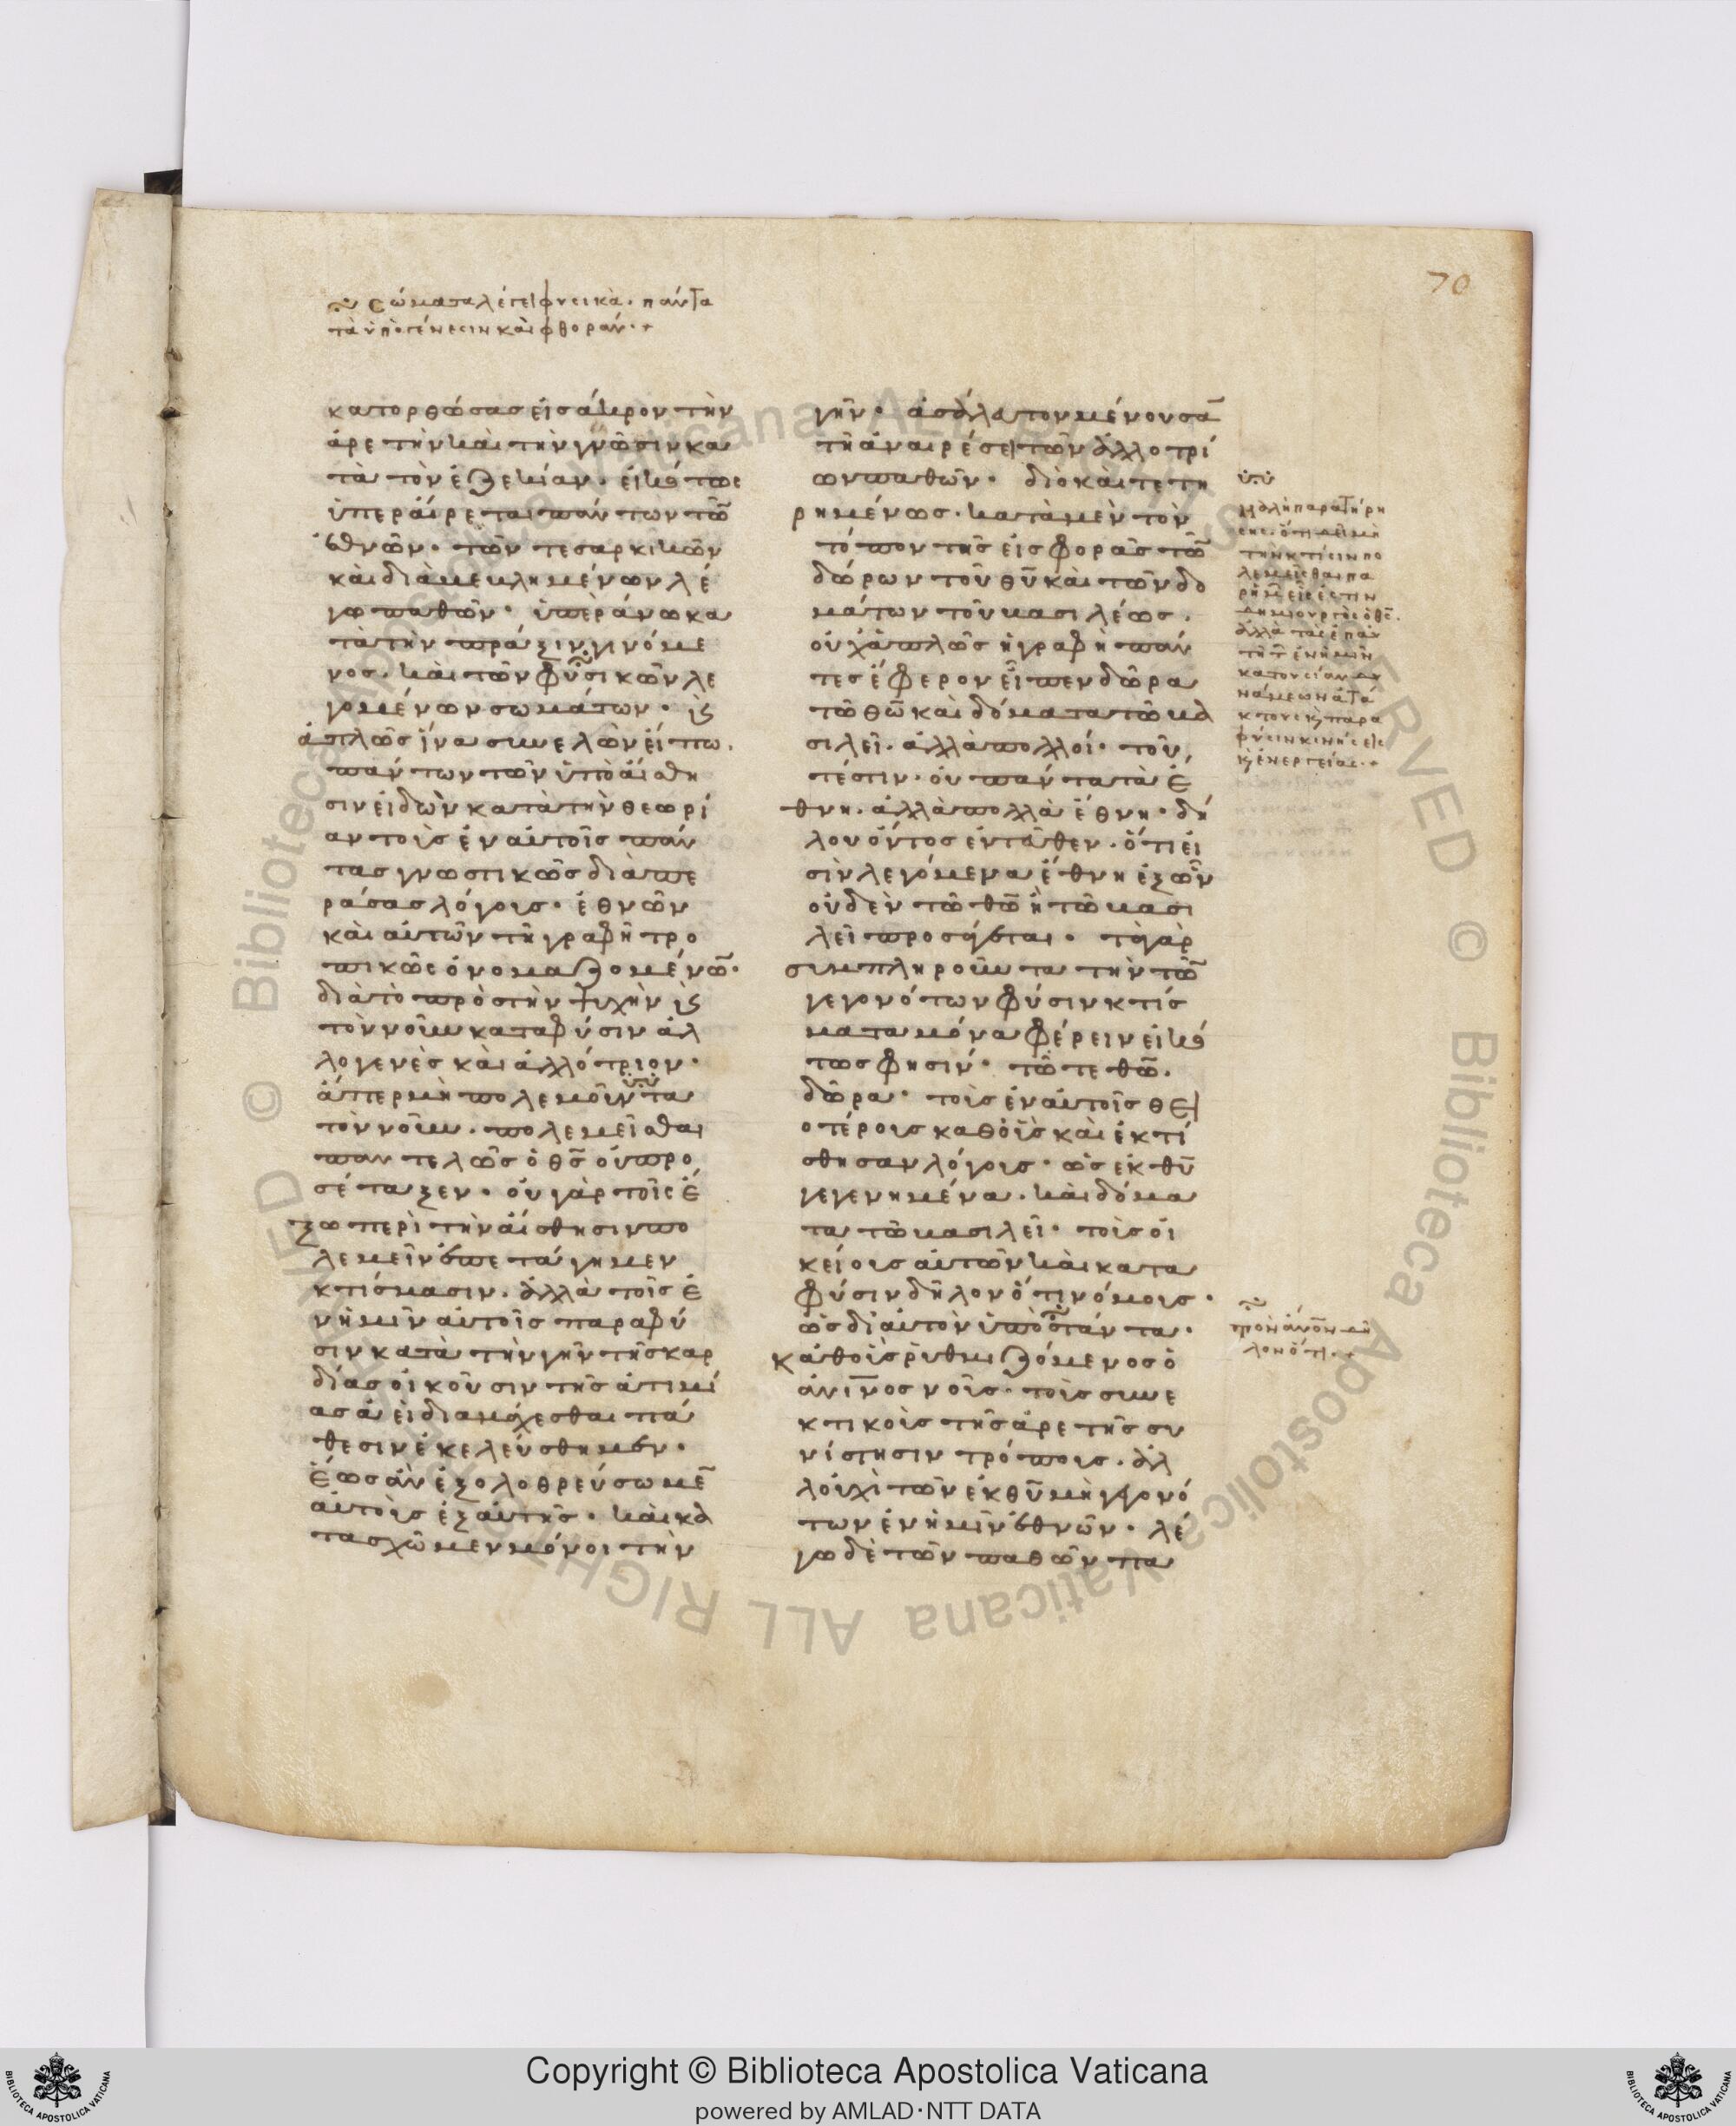 70
σώματα λέγει φυσικὰ· πάντα
τὰ ὑπὸ γένεσιν καὶ φθοράν·+
κατορθώσασ εἰσ άκρον τὴν
ἀρετὴν καὶ τὴν γνῶσιν κα
τὰ τὸν ἐζεκίαν· εἰκότωσ
ὑπεράιρεται πάντων τῶ̄
ἐθνῶν· τῶν τε σαρκικῶν
καὶ διαβεβλημένων λέ
γω παθῶν· ὑπεράνω κα
τὰ τὴν πρᾶξιν γινόμε
νοσ· καὶ τῶν φυσικῶν λε
γομένων σωμάτων· κ̀
ἁπλῶσ ἵνα συνελὼν είπω·
πάντων τῶν ὑπὸ αἴσθη
σιν εἰδῶν κατὰ τὴν θεωρί
αν τοὺσ ἐν αὐτοῖσ πάν
τασ γνωστικῶσ διαπε
ράσασ λόγουσ· ἐθνῶν
καὶ αὐτῶν τῆ γραφῆ τρο
πικῶσ ὀνομαζομένω̄·
διὰ τὸ πρὸσ τὴν ψυχὴν κ̀
τὸν νοῦν καταφύσιν ἀλ
λογενὲσ καὶ ἀλλότριον·
ἅπερ μὴ πολεμοῦντα
τὸν νοῦν· πολεμεῖσθαι
παντελῶσ ὁ θ̅σ̅ οὐ προ
σέταξεν· οὐ γὰρ τοῖσ ἔ
ξω περὶ τὴν αἴσθησιν πο
λεμεῖν ἐπετάγημεν
κτίσμασιν· ἀλλὰ τοῖσ ἐ
ν ἡμῖν αὐτοῖσ παραφύ
σιν κατὰ τὴν γῆν τῆσ καρ
δίασ οἰκοῦσιν τῆσ ἀτιμί
ασ ἀεὶ διαμάχεσθαι πά
θεσιν ἐκελεύσθημεν·
ἕωσ ἂν ἐξολοθρεύσωμε̄
αὐτοὺσ ἐξ αὐτῆσ· καὶ κα
τασχῶμεν μόνοι τὴν
γῆν· ἀσάλευτον μένουσᾱ
τῆ ἀναιρέσει τῶν ἀλλοτρί
ων παθῶν· διὸ καὶ τετη
ρημένωσ· κατὰ μὲν τὸν
τόπον τῆσ εἰσφορᾶσ τῶ̄
δώρων τοῦ θ̅υ̅ καὶ τῶν δο
μάτων τοῦ βασιλέωσ·
οὐχ ἁπλῶσ ἡ γραφὴ πάν
τεσ ἔφερον εἶπεν δῶρα
τῶ θ̅ω̅ καὶ δόματα τῶ βα
σιλεῖ· ἀλλὰ πολλοί· τοῦ
τέστιν· οὐ πάντα τὰ ἔ
θνη· ἀλλὰ πολλὰ ἔθνη· δή
λου ὄντοσ ἐντεῦθεν· ὅτι εἰ
σὶν λεγόμενα ἔθνη ἐξ ὧν
οὐδὲν τῶ θ̅ω̅ ἢ τῶ βασι
λεῖ προσάγεται· τὰ γὰρ
συμπληροῦντα τὴν τῶ̄
γεγονότων φύσιν κτίσ
ματα μόνα φέρειν εἰκό
τωσ φησίν· τῶ τε θ̅ω̅·
δῶρα· τοὺσ ἐν αὐτοῖσ θει
οτέρουσ καθ οὓσ καὶ ἐκτί
σθησαν λόγουσ· ὡσ ἐκ θ̅υ̅
γεγενημένα· καὶ δόμα
τα τῶ βασιλεῖ· τοὺσ οἰ
κείουσ αὐτῶν καὶ κατα
φύσιν δηλονότι νόμουσ·
ὡσ δι αὐτὸν ὑποστάντα·
καθ οὓσ ῥυθμιζόμενοσ ὁ
α̅ν̅ι̅νοσ νοῦσ· τοὺσ συνε
κτικοὺσ τῆσ ἀρετῆσ συ
νίστησιν τρόπουσ· ἀλ
λ οὐχὶ τῶν ἐκ θ̅υ̅ μὴ γεγονό
των ἐν ἡμῖν ἐθνῶν· λέ
γω δὲ τῶν παθῶν τα
καλὴ παρατήρη
σισ· ὅτι δεῖ μὴ
τὴν κτίσιν πο
λεμεῖσθαι πα
ρ ἡμῖν ἧσ ἐστιν
δημιουργὸσ ὁ θ̅σ̅·
ἀλλὰ ταῖσ ἐπαν
τῶν ἐν ἡμῖν
κατουσίαν δυ
νάμεων ἀτά
κτουσ κ̀ παρα
φύσιν κινήσεισ
κ̀ ἐνεργείασ·+
τὸν ἄνο̄ν δη
λονότι·+
Copyright © Biblioteca Apostolica Vaticana
powered by AMLAD·NTT DATA